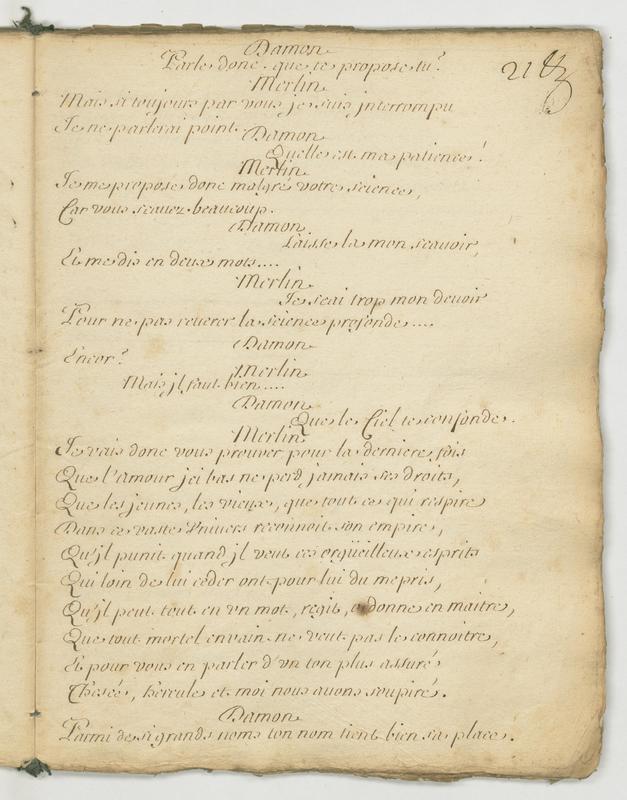 Damon
Parle donc. que te propose tu?
Merlin
Mais si toujours par vous je suis jnterrompu
Je ne parlerai point.
Damon
Quelle est ma patience!
Merlin
Je me propose donc malgré votre science,
Car vous scavez beaucoup.
Damon
Laisse la mon scavoir,
Et me dis en deux mots....
Merlin
Je scai trop mon devoir
Pour ne pas reverer la science profonde....
Damon
Encor?
Merlin
Mais jl faut bien....
Damon
Que le Ciel te confonde.
Merlin
Je vais donc vous prouver pour la derniere fois
Que l'amour jci bas ne perd jamais ses droits,
Que les jeunes, les vieux, que tout ce qui respire
Dans ce vaste Univers reconnoit son empire,
Qu'jl punit quand jl veut ces orgüeilleux esprits
Qui loin de lui ceder ont pour lui du mepris,
Qu'jl peut tout en vn mot, regit, ordonne en maitre,
Que tout mortel envain ne veut pas le connoitre,
Et pour vous en parler d'vn ton plus assuré
Thesée, hercule et moi nous avons soupiré.
Damon
Parmi de si grands noms ton nom tient bien sa place.